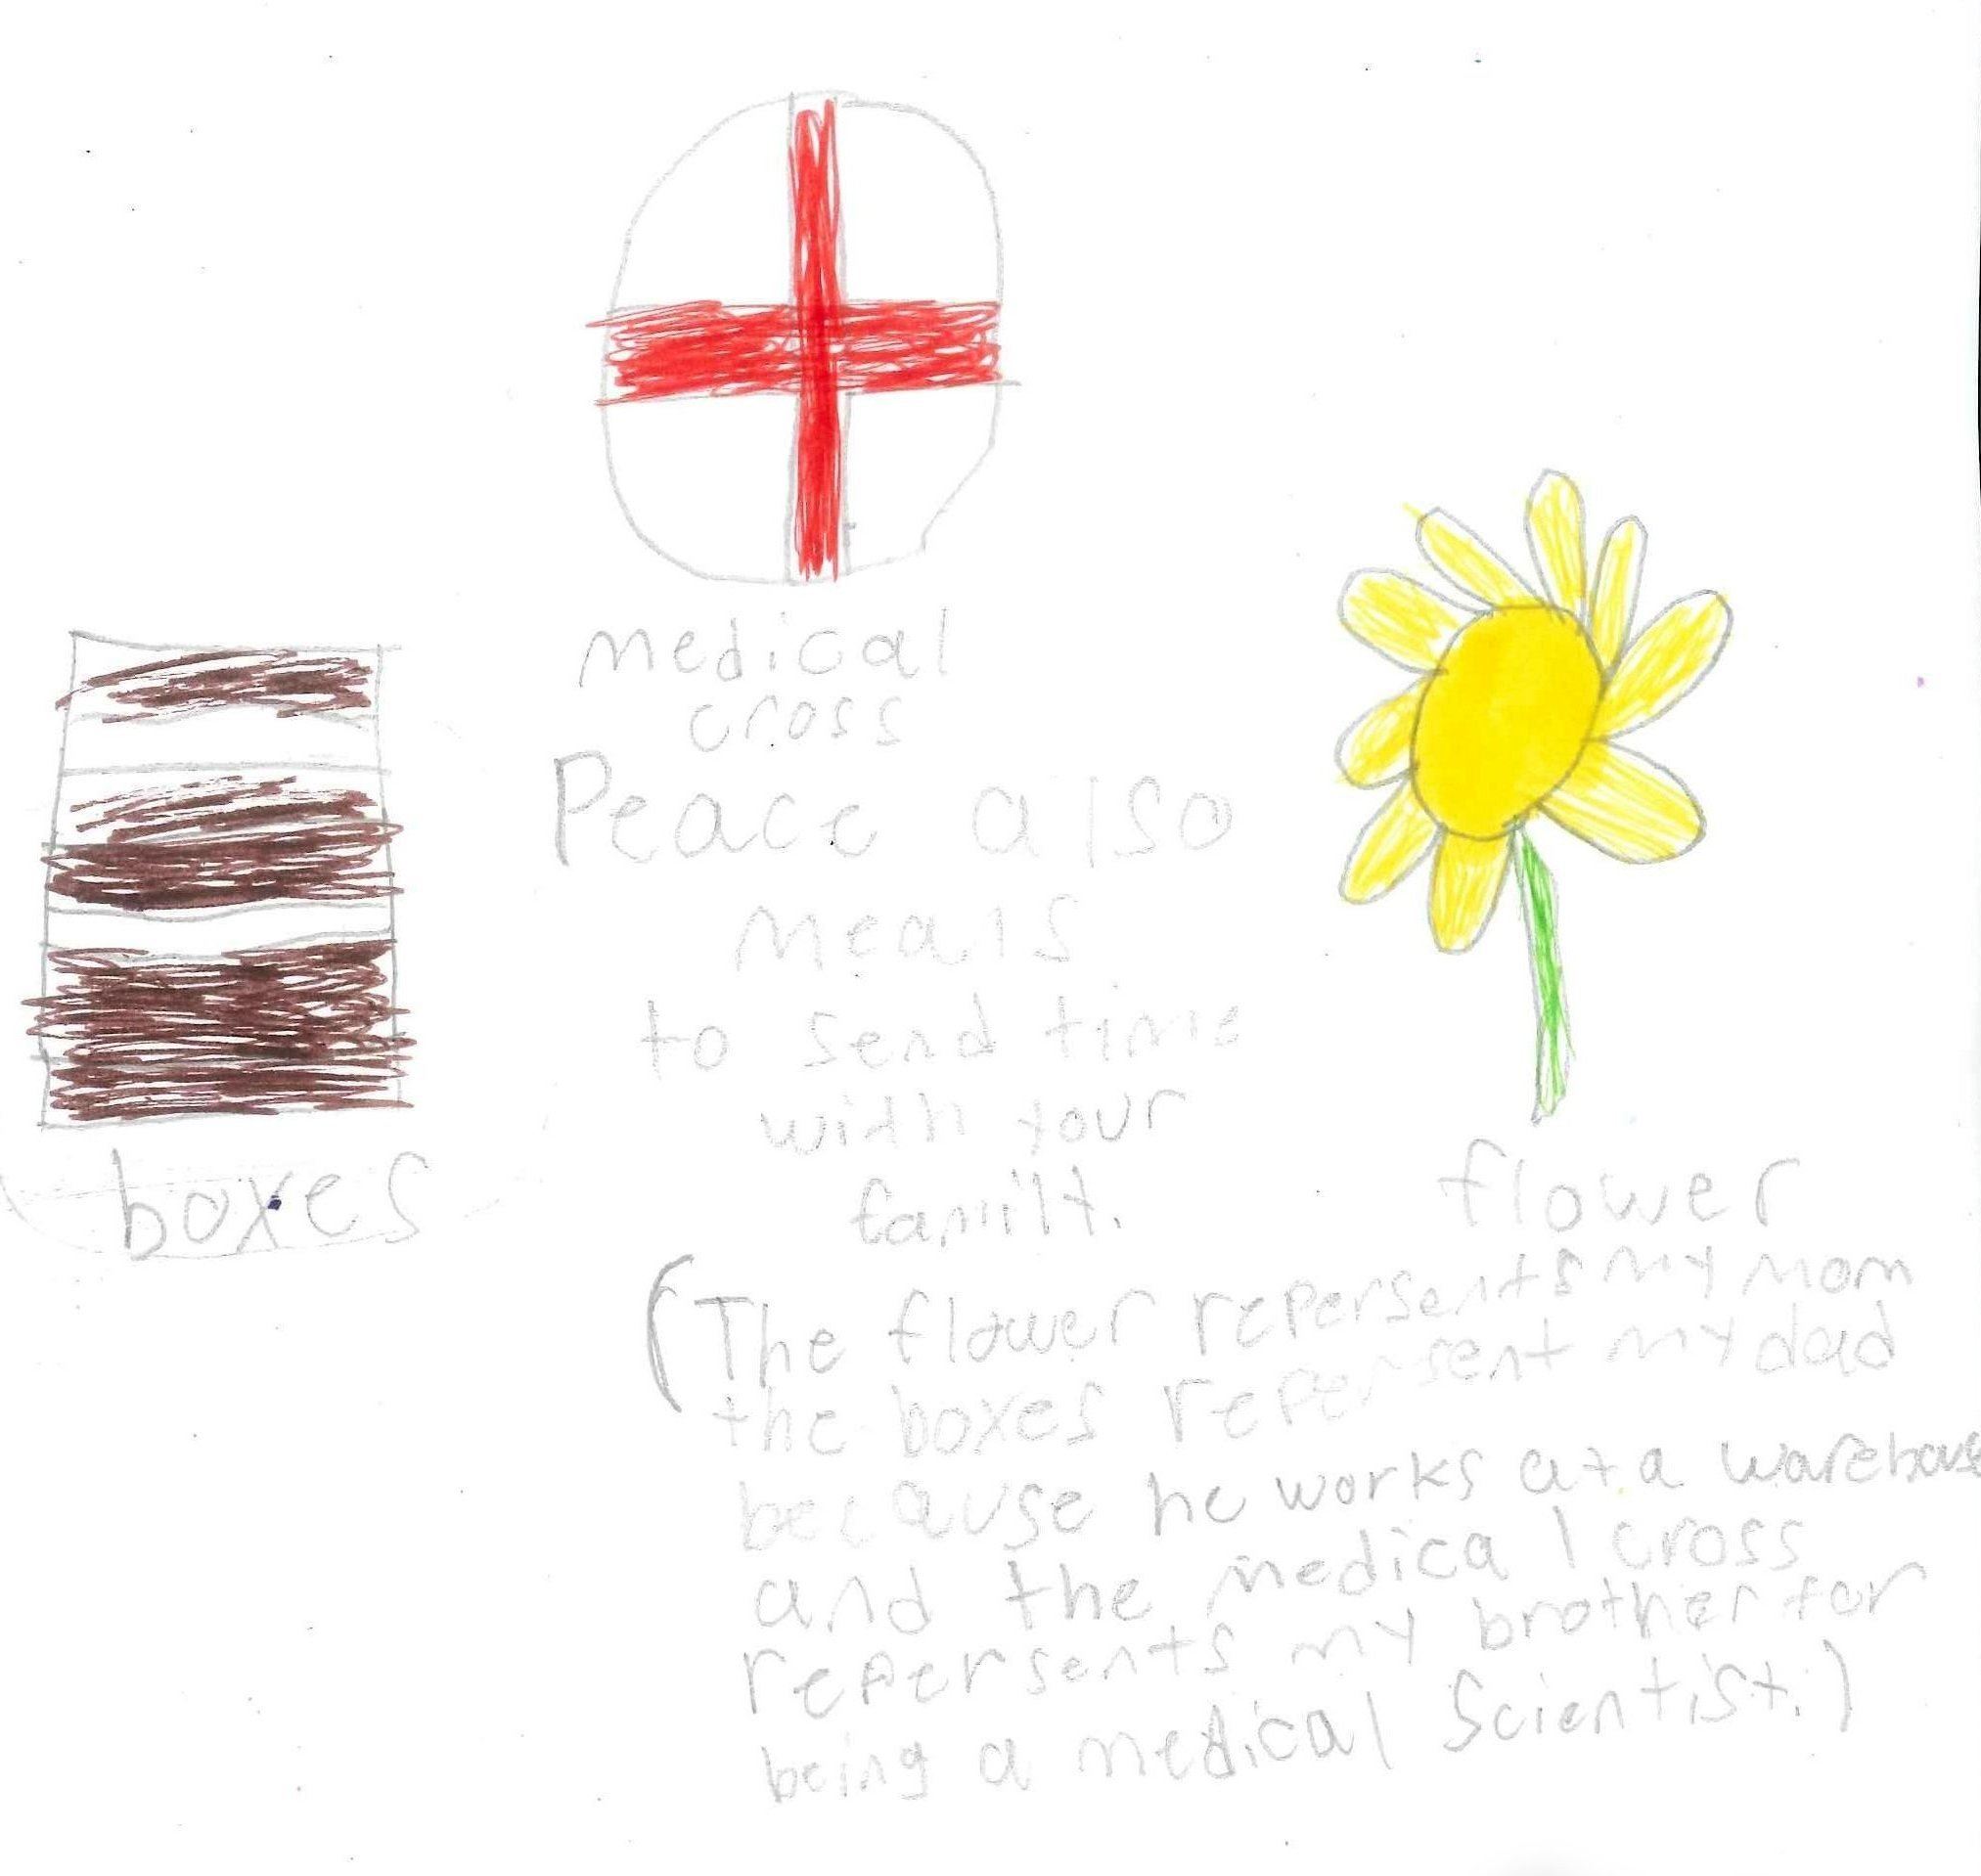 medical
cross
Peace also
means
to send time
with your
familt.
boxes
flower
(The flower repersents my mom
the boxes repersent my dad
because he works at a warehouse
and the medical cross
repersents my brother for
being a medical Scientist.)